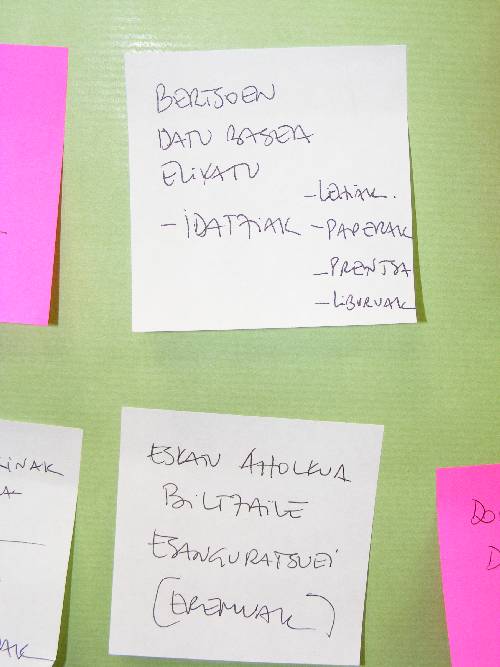 BERTSOEN
DATU BASEA
ELIKATU
-LEHIAK.
-IDATZIAK -PAPERAK
-PRENTSA
-LIBURUAK
ESKATU AHOLKUA
BILTZAILE
ESANGURATSUEI
(EREMUAK)
DO
D